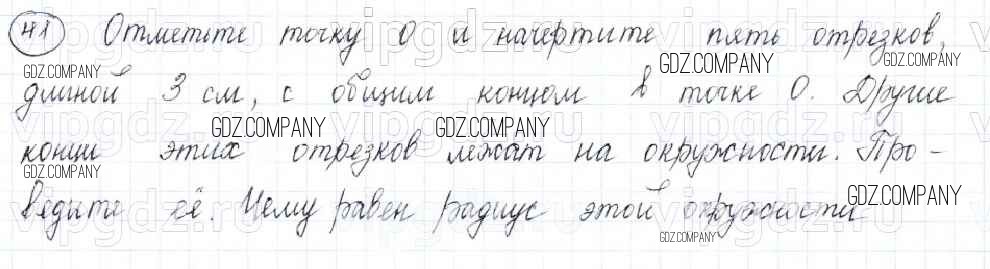 41 Отметьте точку О и начертите пять отрезков,
длиной 3 см, с общим концом в точке О. Другие
концы этих отрезков лежат на окружности. Про-
ведите её. Чему равен радиус этой окружности
GDZ.COMPANY
GDZ.COMPANY
GDZ.COMPANY
GDZ.COMPANY
GDZ.COMPANY
GDZ.COMPANY
GDZ.COMPANY
GDZ.COMPANY
vipgdz.ru